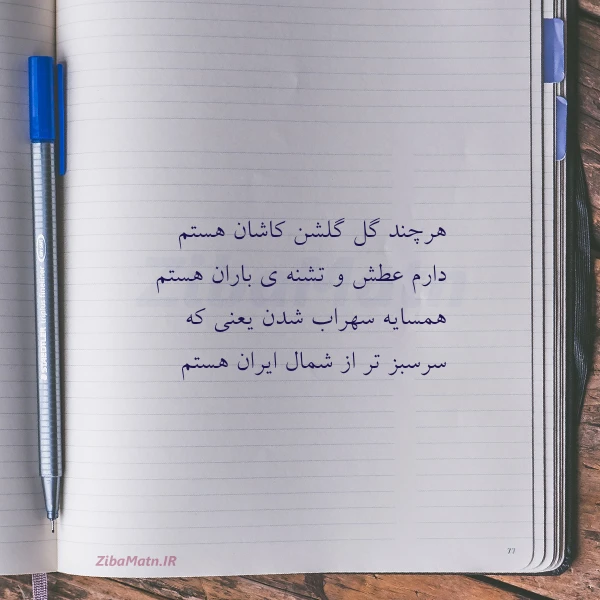 هرچند گل گلشن کاشان هستم
دارم عطش و تشنه ی باران هستم
همسایه سهراب شدن یعنی که
سرسبز تر از شمال ایران هستم
ZibaMatn.IR